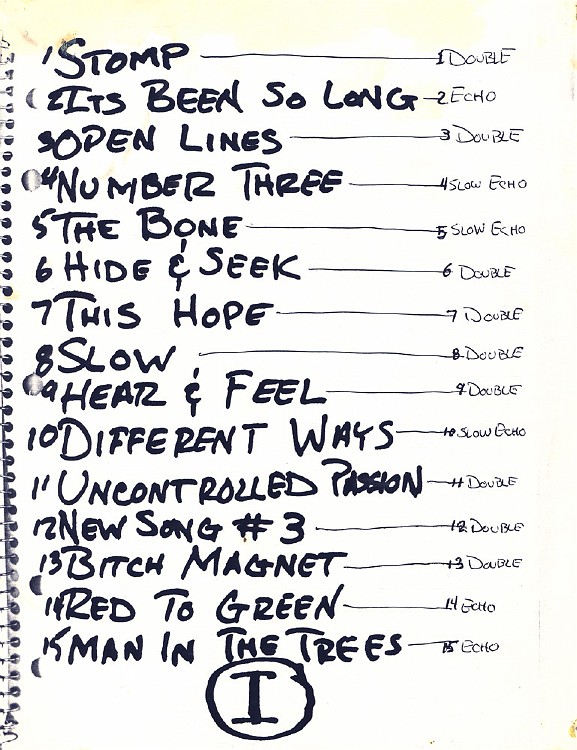 1 STOMP 1 DOUBLE
2 ITS BEEN SO LONG 2 ECHO
3 OPEN LINES 3 DOUBLE
4 NUMBER THREE 4 SLOW ECHO
5 THE BONE 5 SLOW ECHO
6 HIDE & SEEK 6 DOUBLE
7 THIS HOPE 7 DOUBLE
8 SLOW 8 DOUBLE
9 HEAR & FEEL 9 DOUBLE
10 DIFFERENT WAYS 10 SLOW ECHO
11 UNCONTROLLED PASSION 11 DOUBLE
12 NEW SONG # 3 12 DOUBLE
13 BITCH MAGNET 13 DOUBLE
14 RED TO GREEN 14 ECHO
15 MAN IN THE TREES 15 ECHO
I